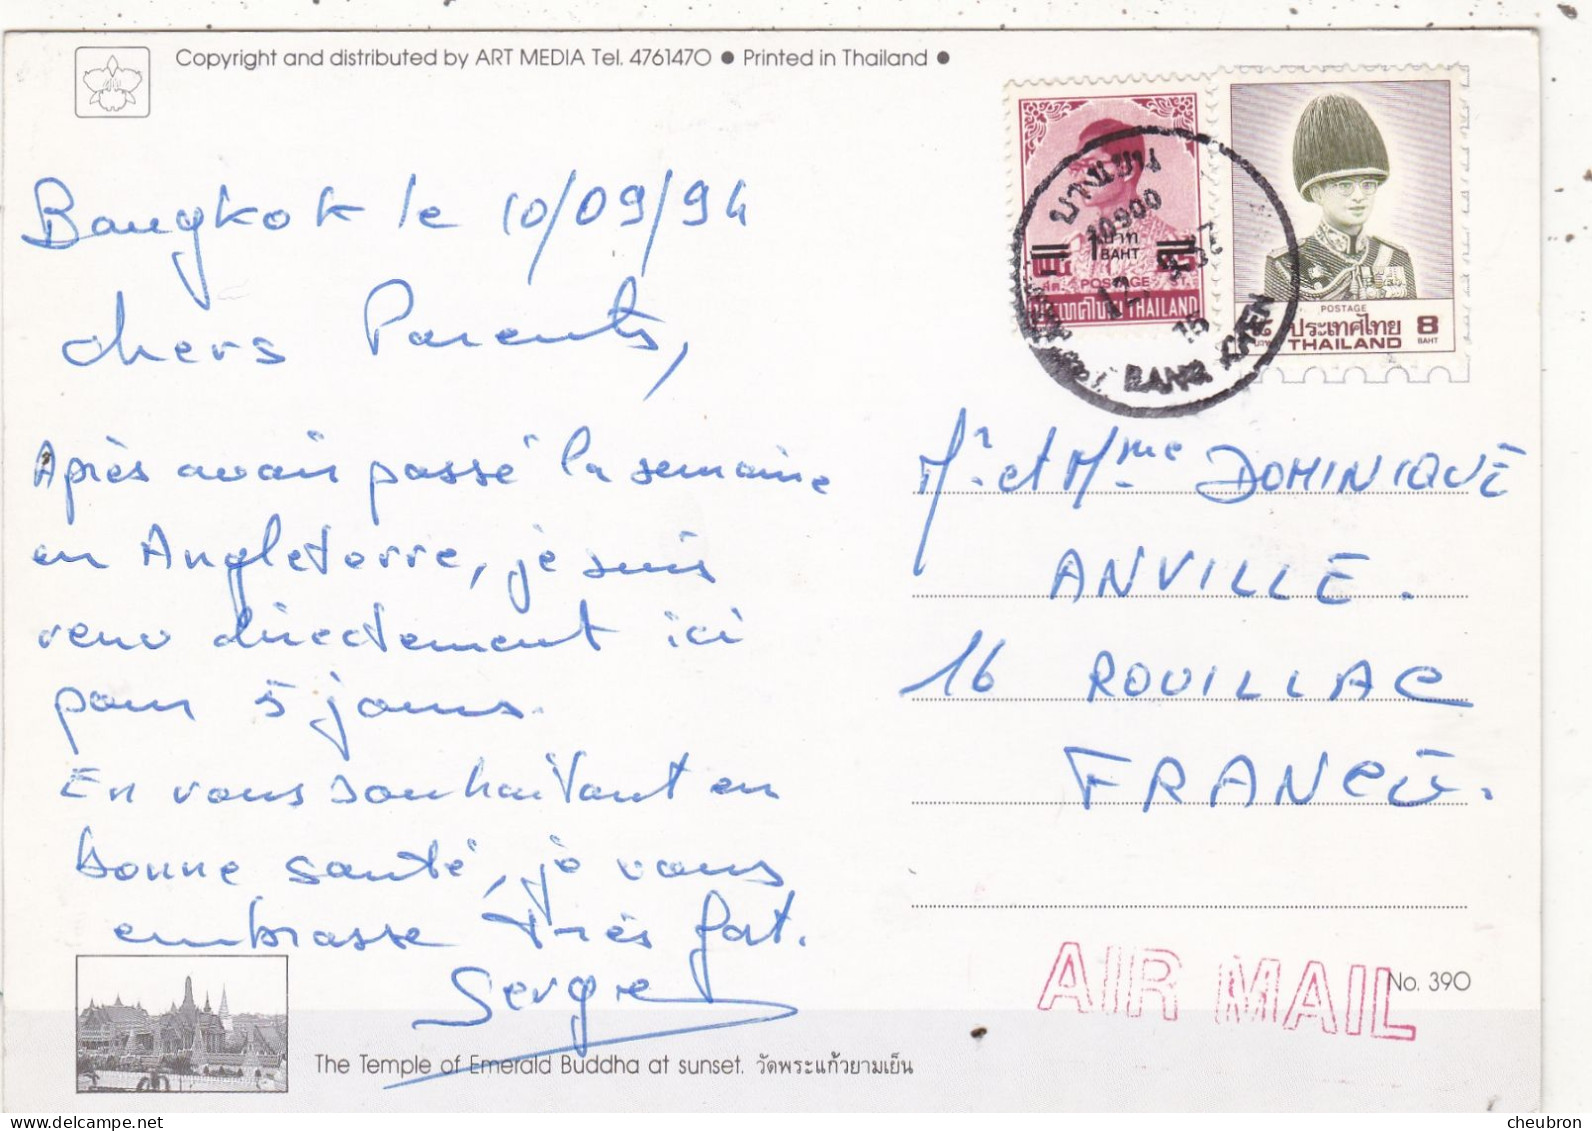 Copyright and distributed by ART MEDIA Tel. 4761470 ● Printed in Thailand ●
Bangkok le 10/09/94
chers Parents,
Après avoir passé la semaine
en Angleterre, je suis
venu directement ici
pour 5 jours.
En vous souhaitant en
bonne santé, je vous
embrasse très fort.
Serge
The Temple of Emerald Buddha at sunset. วัดพระแก้วยามเย็น
1 บาท
BAHT
POSTAGE
THAILAND
POSTAGE
ประเทศไทย 8
THAILAND BAHT
บางเขน
10900
12
15
BANG KHEN
Mr et Mme DOMINIQUE
ANVILLE.
16 ROUILLAC
FRANCE.
AIR MAIL
No. 390
cheubron